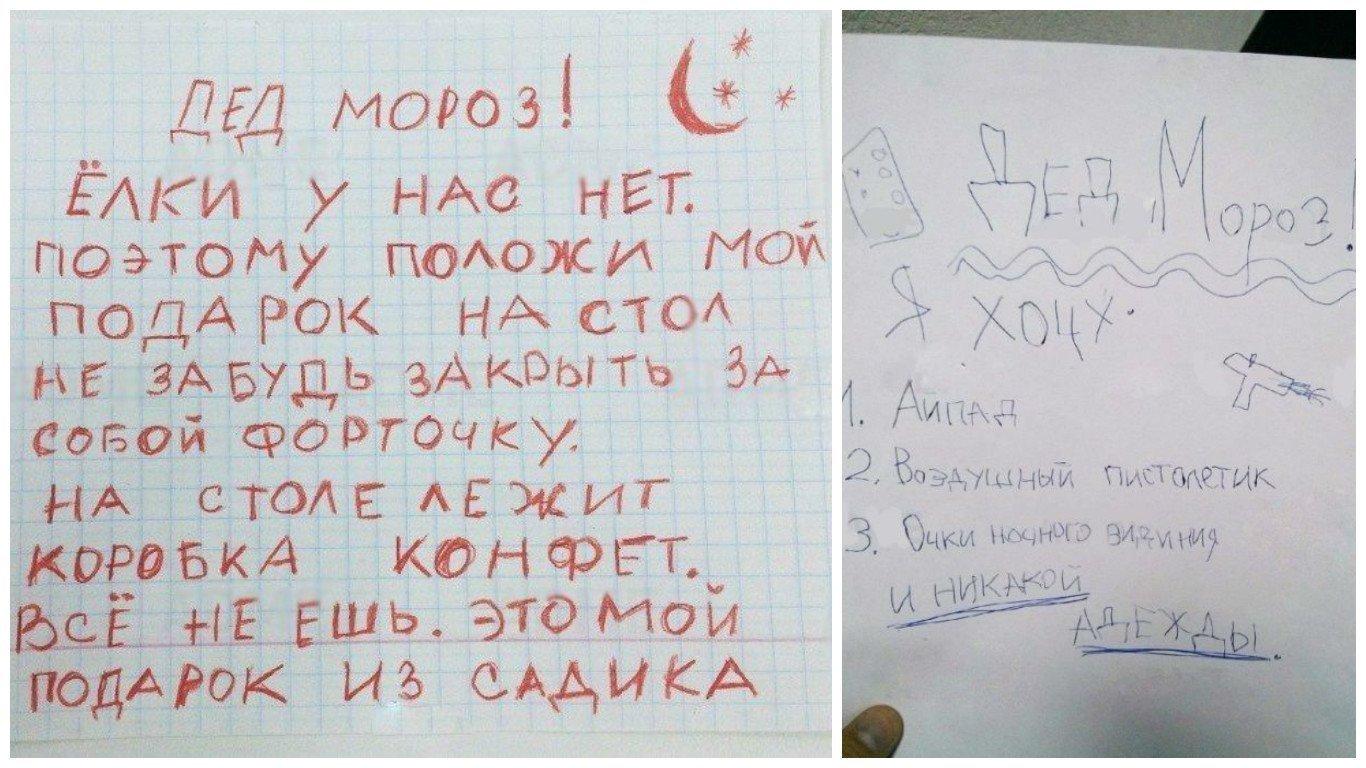 ДЕД МОРОЗ!
ЁЛКИ У НАС НЕТ.
ПОЭТОМУ ПОЛОЖИ МОЙ
ПОДАРОК НА СТОЛ
НЕ ЗАБУДЬ ЗАКРЫТЬ ЗА
СОБОЙ ФОРТОЧКУ.
НА СТОЛЕ ЛЕЖИТ
КОРОБКА КОНФЕТ.
ВСЁ НЕ ЕШЬ. ЭТО МОЙ
ПОДАРОК ИЗ САДИКА
Дед Мороз!
Я ХОЦУ.
1. Айпад
2. Воздушный пистолетик
3. Очки ночного видиния
и НИКАКОЙ
АДЕЖДЫ.